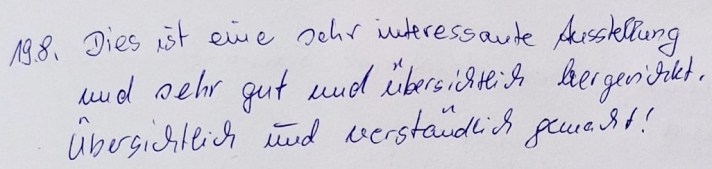 19.8. Dies ist eine sehr interessante Ausstellung
und sehr gut und übersichtlich hergerichtet.
Übersichtlich und verständlich gemacht!